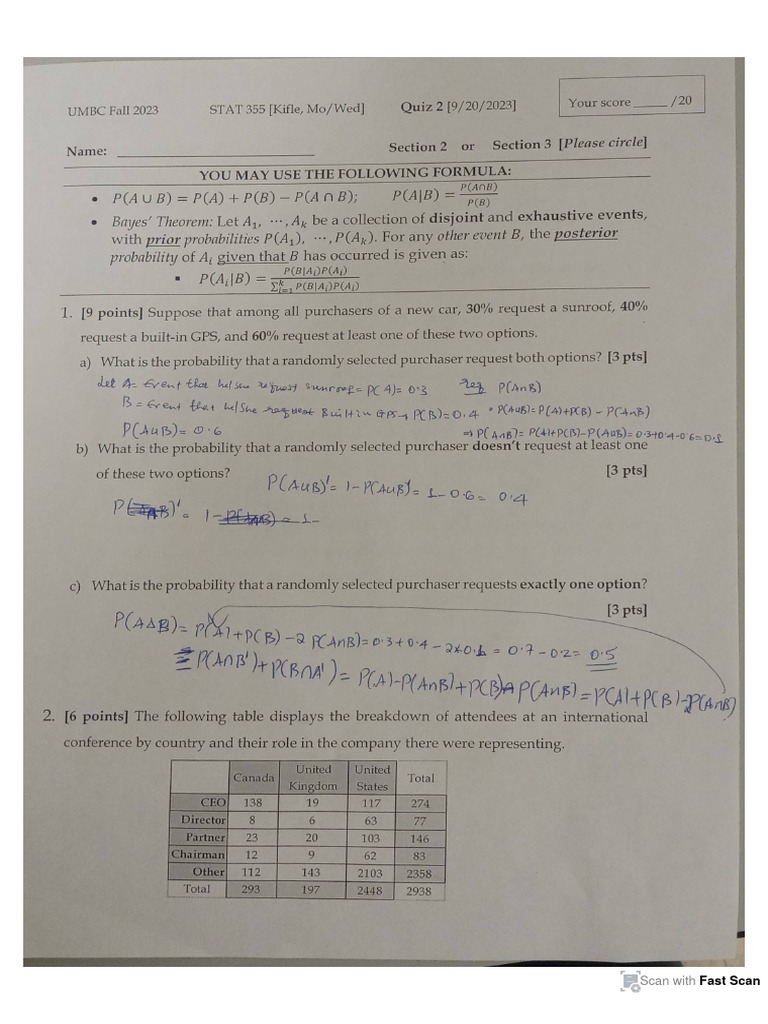 UMBC Fall 2023 STAT 355 [Kifle, Mo/Wed] Quiz 2 [9/20/2023] Your score _____ /20
Name: ______________________ Section 2 or Section 3 [Please circle]
YOU MAY USE THE FOLLOWING FORMULA:
• P(A ∪ B) = P(A) + P(B) − P(A ∩ B); P(A|B) = P(A∩B)/P(B)
• Bayes' Theorem: Let A₁, ⋯, Aₖ be a collection of disjoint and exhaustive events,
with prior probabilities P(A₁), ⋯, P(Aₖ). For any other event B, the posterior
probability of Aᵢ given that B has occurred is given as:
▪ P(Aᵢ|B) = P(B|Aᵢ)P(Aᵢ) / Σᵏᵢ₌₁ P(B|Aᵢ)P(Aᵢ)
1. [9 points] Suppose that among all purchasers of a new car, 30% request a sunroof, 40%
request a built-in GPS, and 60% request at least one of these two options.
a) What is the probability that a randomly selected purchaser request both options? [3 pts]
Let A= Event that he/she request sunroof = P(A)= 0.3 req P(A∩B)
B = Event that he/she request Built in GPS → P(B)=0.4 • P(A∪B)=P(A)+P(B) − P(A∩B)
P(A∪B) = 0.6 ⇒ P(A∩B)= P(A)+P(B)−P(A∪B)=0.3+0.4−0.6=0.1
b) What is the probability that a randomly selected purchaser doesn't request at least one
of these two options? [3 pts]
P(A∪B)' = 1−P(A∪B) = 1−0.6= 0.4
P( )' = 1− = 1−
c) What is the probability that a randomly selected purchaser requests exactly one option?
[3 pts]
P(A∆B)= P(A)+P(B)−2 P(A∩B)=0.3+0.4−2×0.1 = 0.7−0.2= 0.5
= P(A∩B')+P(B∩A') = P(A)−P(A∩B)+P(B)−P(A∩B) = P(A)+P(B)−2P(A∩B)
2. [6 points] The following table displays the breakdown of attendees at an international
conference by country and their role in the company there were representing.
Canada United Kingdom United States Total
CEO 138 19 117 274
Director 8 6 63 77
Partner 23 20 103 146
Chairman 12 9 62 83
Other 112 143 2103 2358
Total 293 197 2448 2938
Scan with Fast Scan